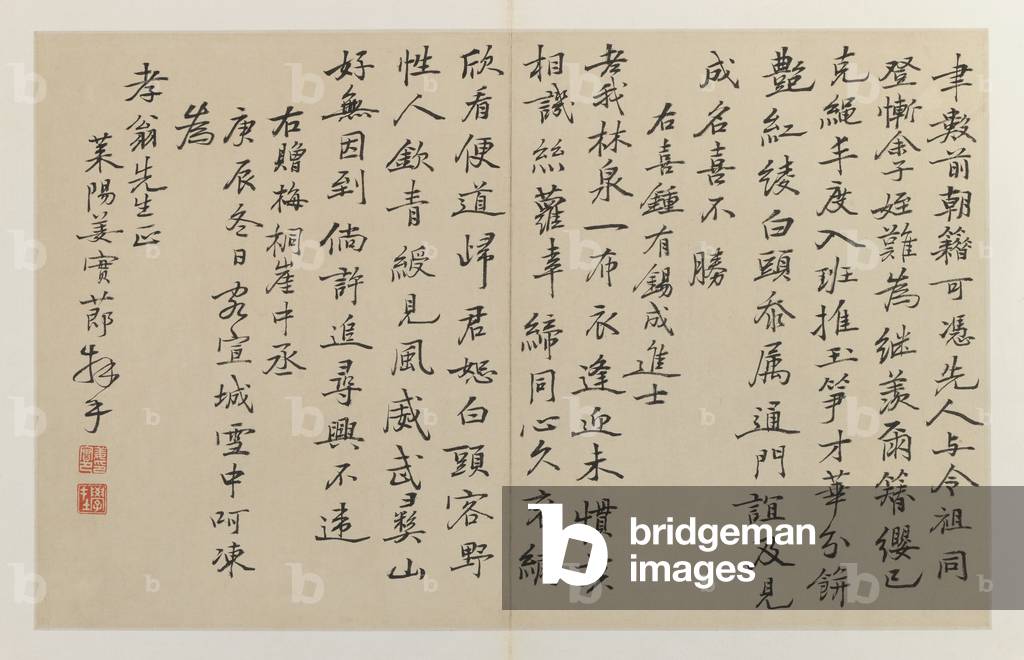 聿數前朝籍可憑先人与令祖同
登慚余子姪難為继羡爾簪纓已
克繩丰度入班推玉笋才華分餅
艷紅綾白頭忝属通門誼及見
成名喜不勝
右喜鍾有錫成進士
老我林泉一布衣逢迎未慣
相譏絲蘿幸締同心久衣
欣看便道歸君恕白頭客野
性人欽青綬見風威武彛山
好無因到倘許追尋興不違
右贈梅桐崖中丞
庚辰冬日客宣城雪中呵凍
為
孝翁先生正
萊陽姜實莭
bridgeman
images